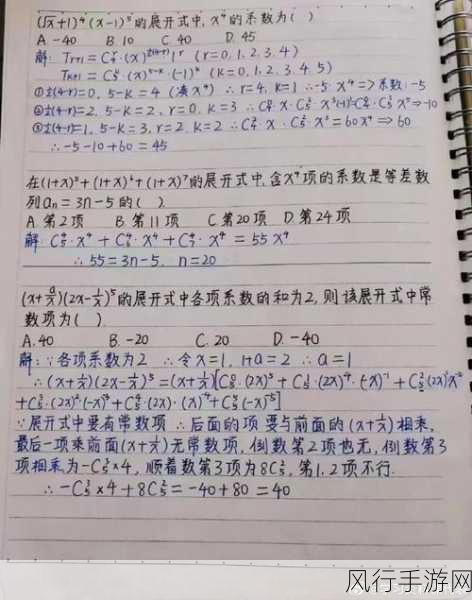 (√x+1)⁴(x-1)⁵的展开式中, x⁴的系数为( )
A. -40 B. 10 C. 40 D. 45
解: Tr+1 = C₄ʳ·(x)^½(4-r)·1ʳ (r=0.1.2.3.4)
Tk+1 = C₅ᵏ·(x)⁵⁻ᵏ·(-1)ᵏ (k=0.1.2.3.4.5)
①½(4-r)=0, 5-k=4 (凑x⁴) ∴r=4, k=1 ∴-5·x⁴ => 系数: -5
②½(4-r)=2, 5-k=2, r=0, k=3
③½(4-r)=1, 5-k=3, r=2, k=2 ∴C₄²·x·C₅²·x³=60x⁴ => 60
∴-5-10+60=45
在(1+x)⁵+(1+x)⁶+(1+x)⁷的展开式中,含x⁴项的系数是等差数
列an=3n-5的( )
A. 第2项 B. 第11项 C. 第20项 D. 第24项
解: C₅⁴·x⁴+C₆⁴·x⁴+C₇⁴·x⁴=55x⁴
∴55=3n-5. n=20
(x+a/x)(2x-1/x)⁵的展开式中各项系数的和为2,则该展开式中常
数项为( ).
A. 40 B. -20 C. 20 D. -40
解: ∵各项系数为2 ∴令x=1, 1+a=2 ∴a=1
∴(x+1/x)(2x-1/x)⁵=(x+1/x)[C₅⁰·(2x)⁵+C₅¹·(2x)⁴·(-x)⁻¹+C₅²(2x)³x⁻²
∵展开式中要有常数项 ∴后面的项要与前面的(x+1/x)相乘,
最后一项乘前面(x+1/x)无常数项,倒数第2项也无,倒数第3
项相乘为-C₅³×4,顺着数第3项为8C₅²,第1.2项不行.
∴-C₅³×4+8C₅²=-40+80=40
风行手游网